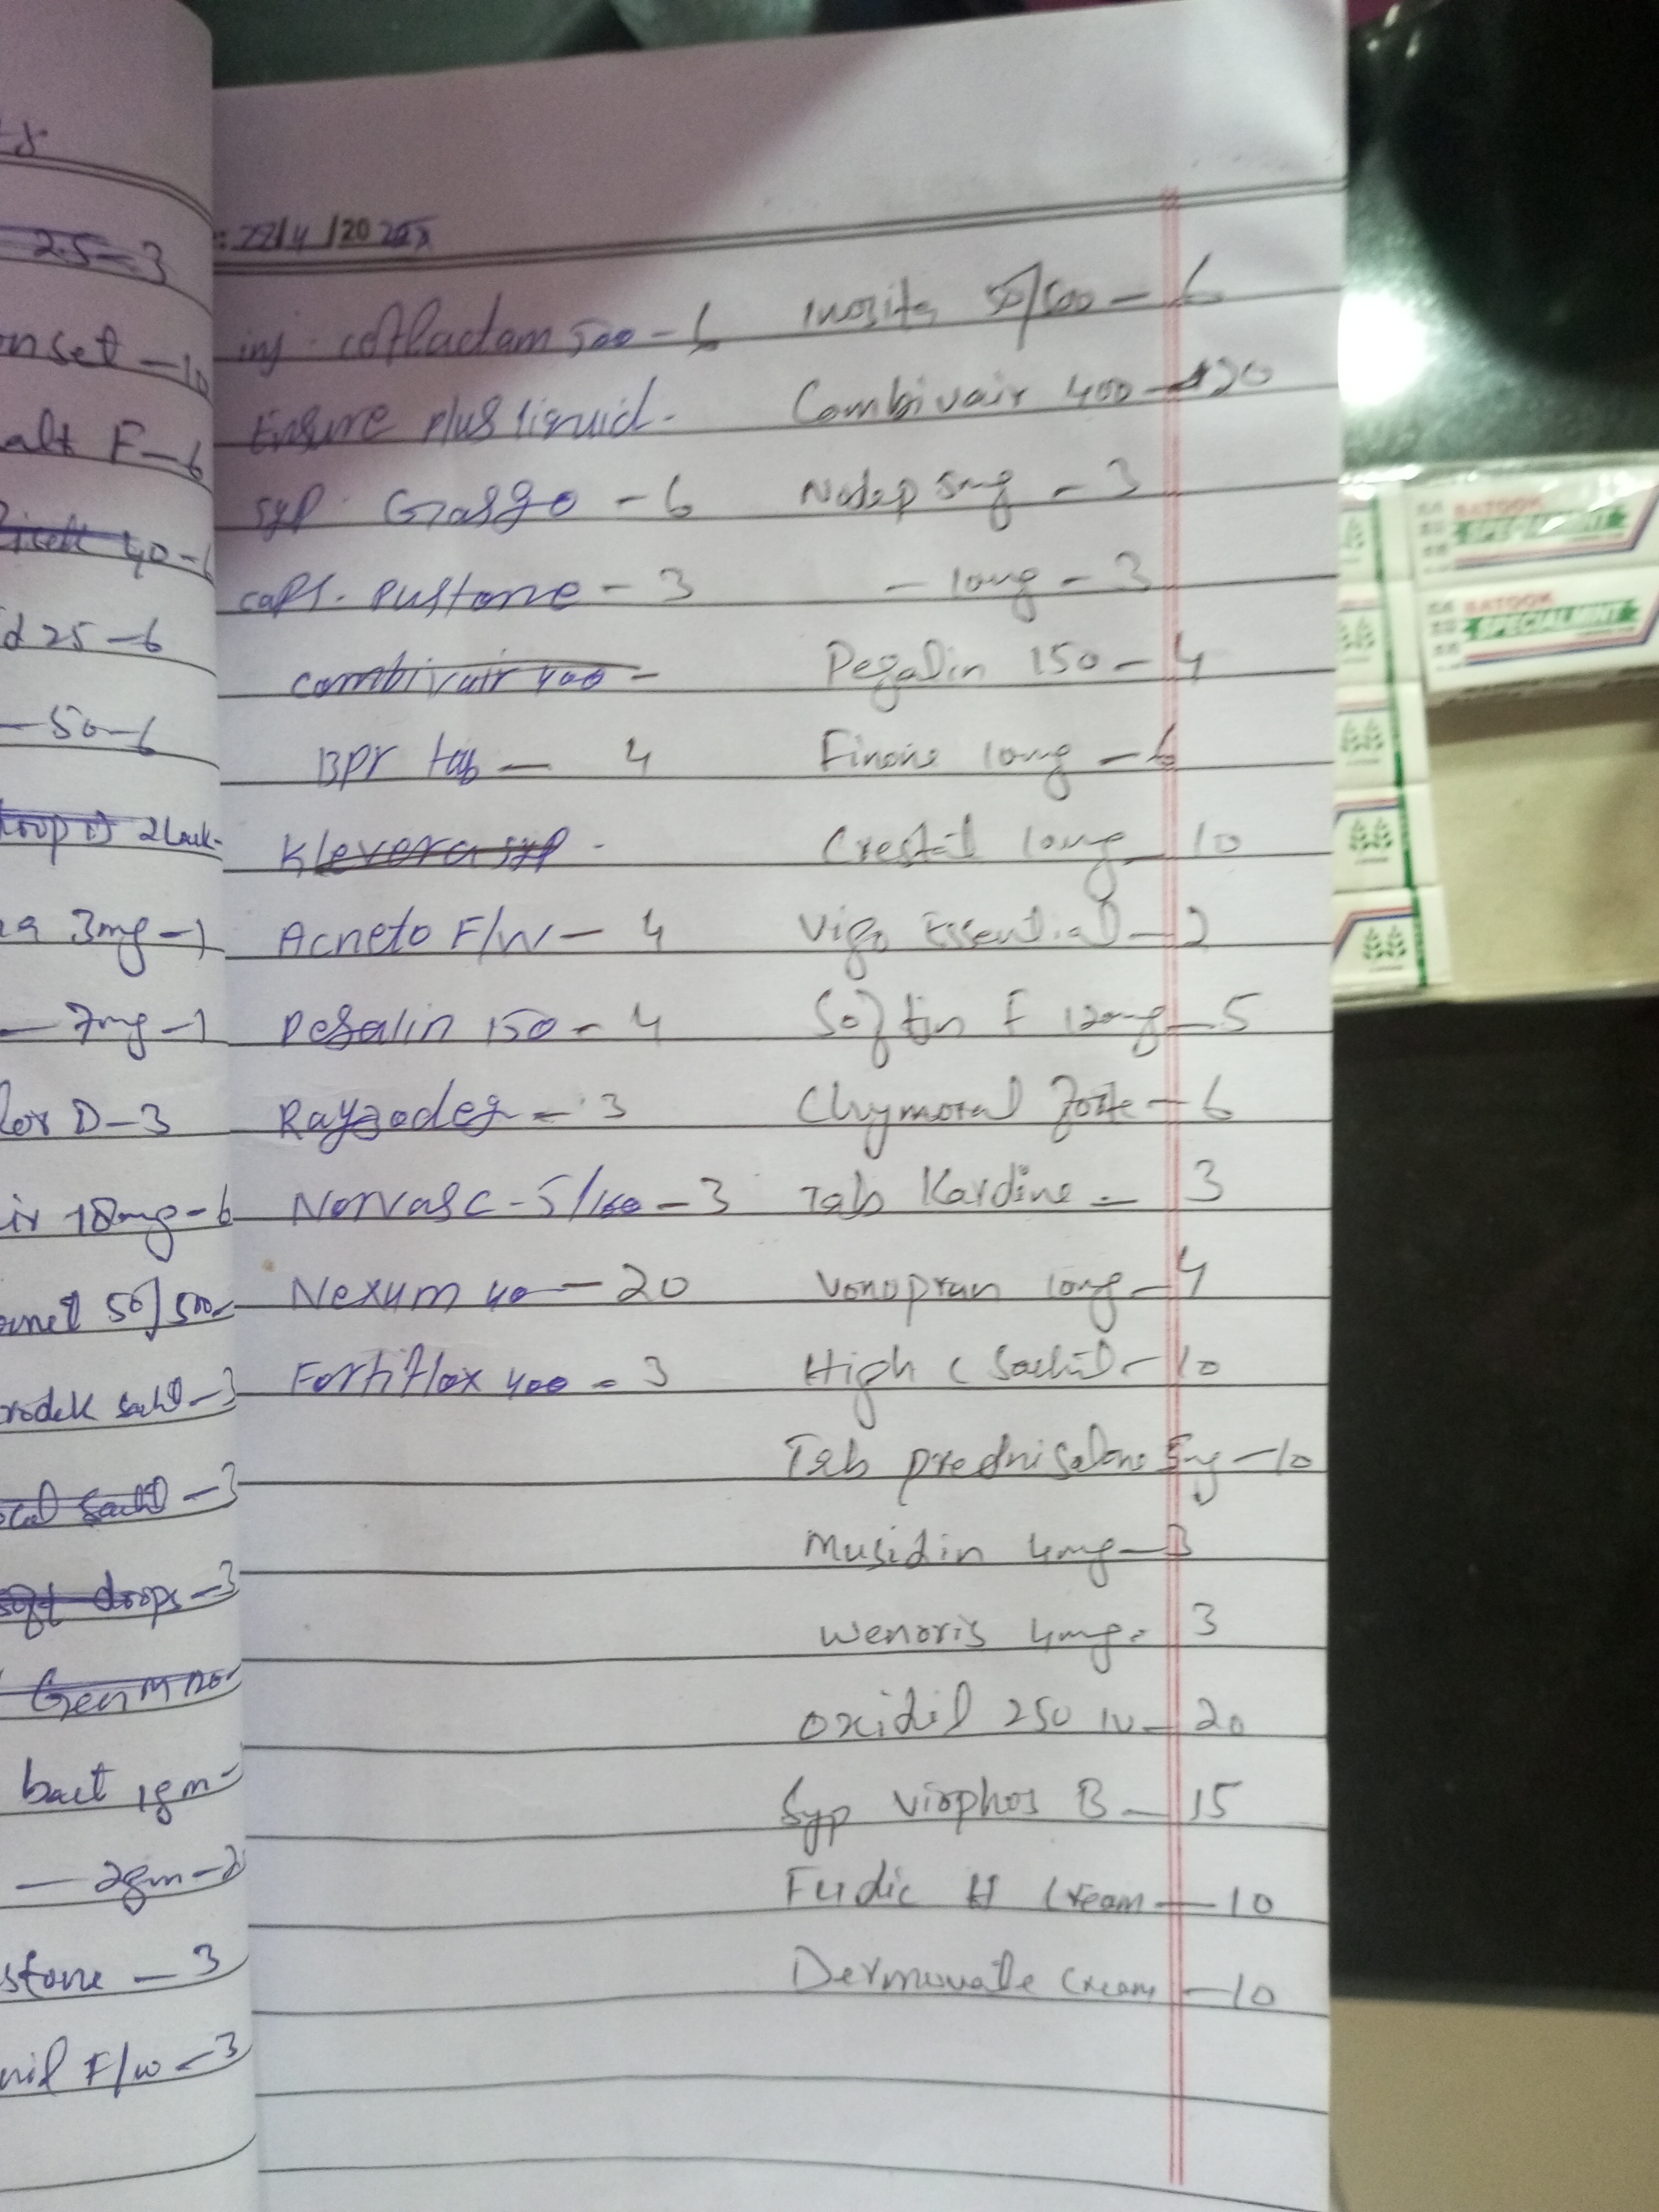 25-3
onset-10
alt F-6
40-
d 25-6
-50-6
drops 2 Lack-
a 3mg-1
-7mg-1
lor D-3
ir 18mg-6
50/500-
rodek -3
-3
drops-3
Gen M
bact 1gm-
-2gm-2
stone-3
F/W-3
22/4/2025
inj. 500-6
Ensure plus liquid-
syp. Gasgo-6
caps. Pustone-3
Combivair 400-
Bpr tab-4
Klevera syp-
Acneto F/W-4
Pegalin 150-4
Rayzodeg-3
Norvasc-5/160-3
Nexum 40-20
Fortiflox 400-3
Inosita 50/500-6
Combivair 400-20
Nodep 5mg-3
-10mg-3
Pegalin 150-4
10mg-6
10mg-10
Vigo Essential-2
Softin F 120mg-5
Chymoral Forte-6
Tab Kardine-3
Vonopran 10mg-4
High C Sachet-10
Tab prednisolone 5mg-10
Musidin 4mg-3
Wenoris 4mg-3
Oxidil 250 IV-20
Syp B-15
Fudic H Cream-10
Dermovate Cream-10
BATOOK
SPECIALMINT
BATOOK
SPECIALMINT